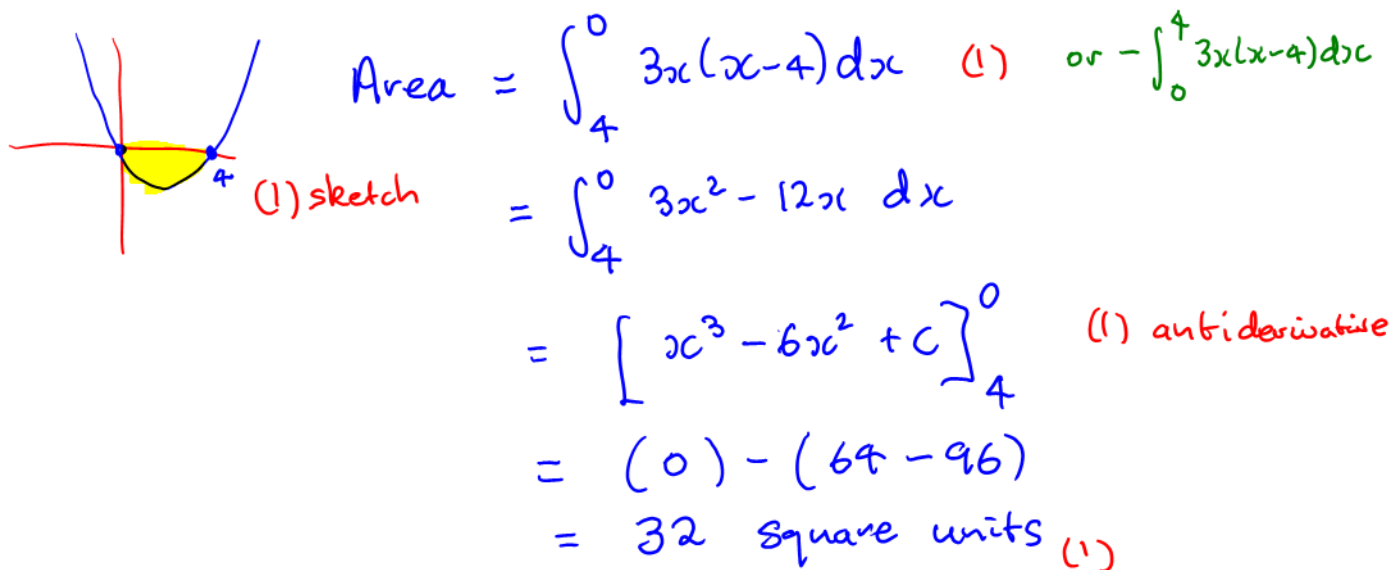 Area = ∫₄⁰ 3x(x-4) dx (1) or - ∫₀⁴ 3x(x-4) dx
4
(1) sketch
= ∫₄⁰ 3x² - 12x dx
= [x³ - 6x² + C]₄⁰ (1) antiderivative
= (0) - (64 - 96)
= 32 square units (1)